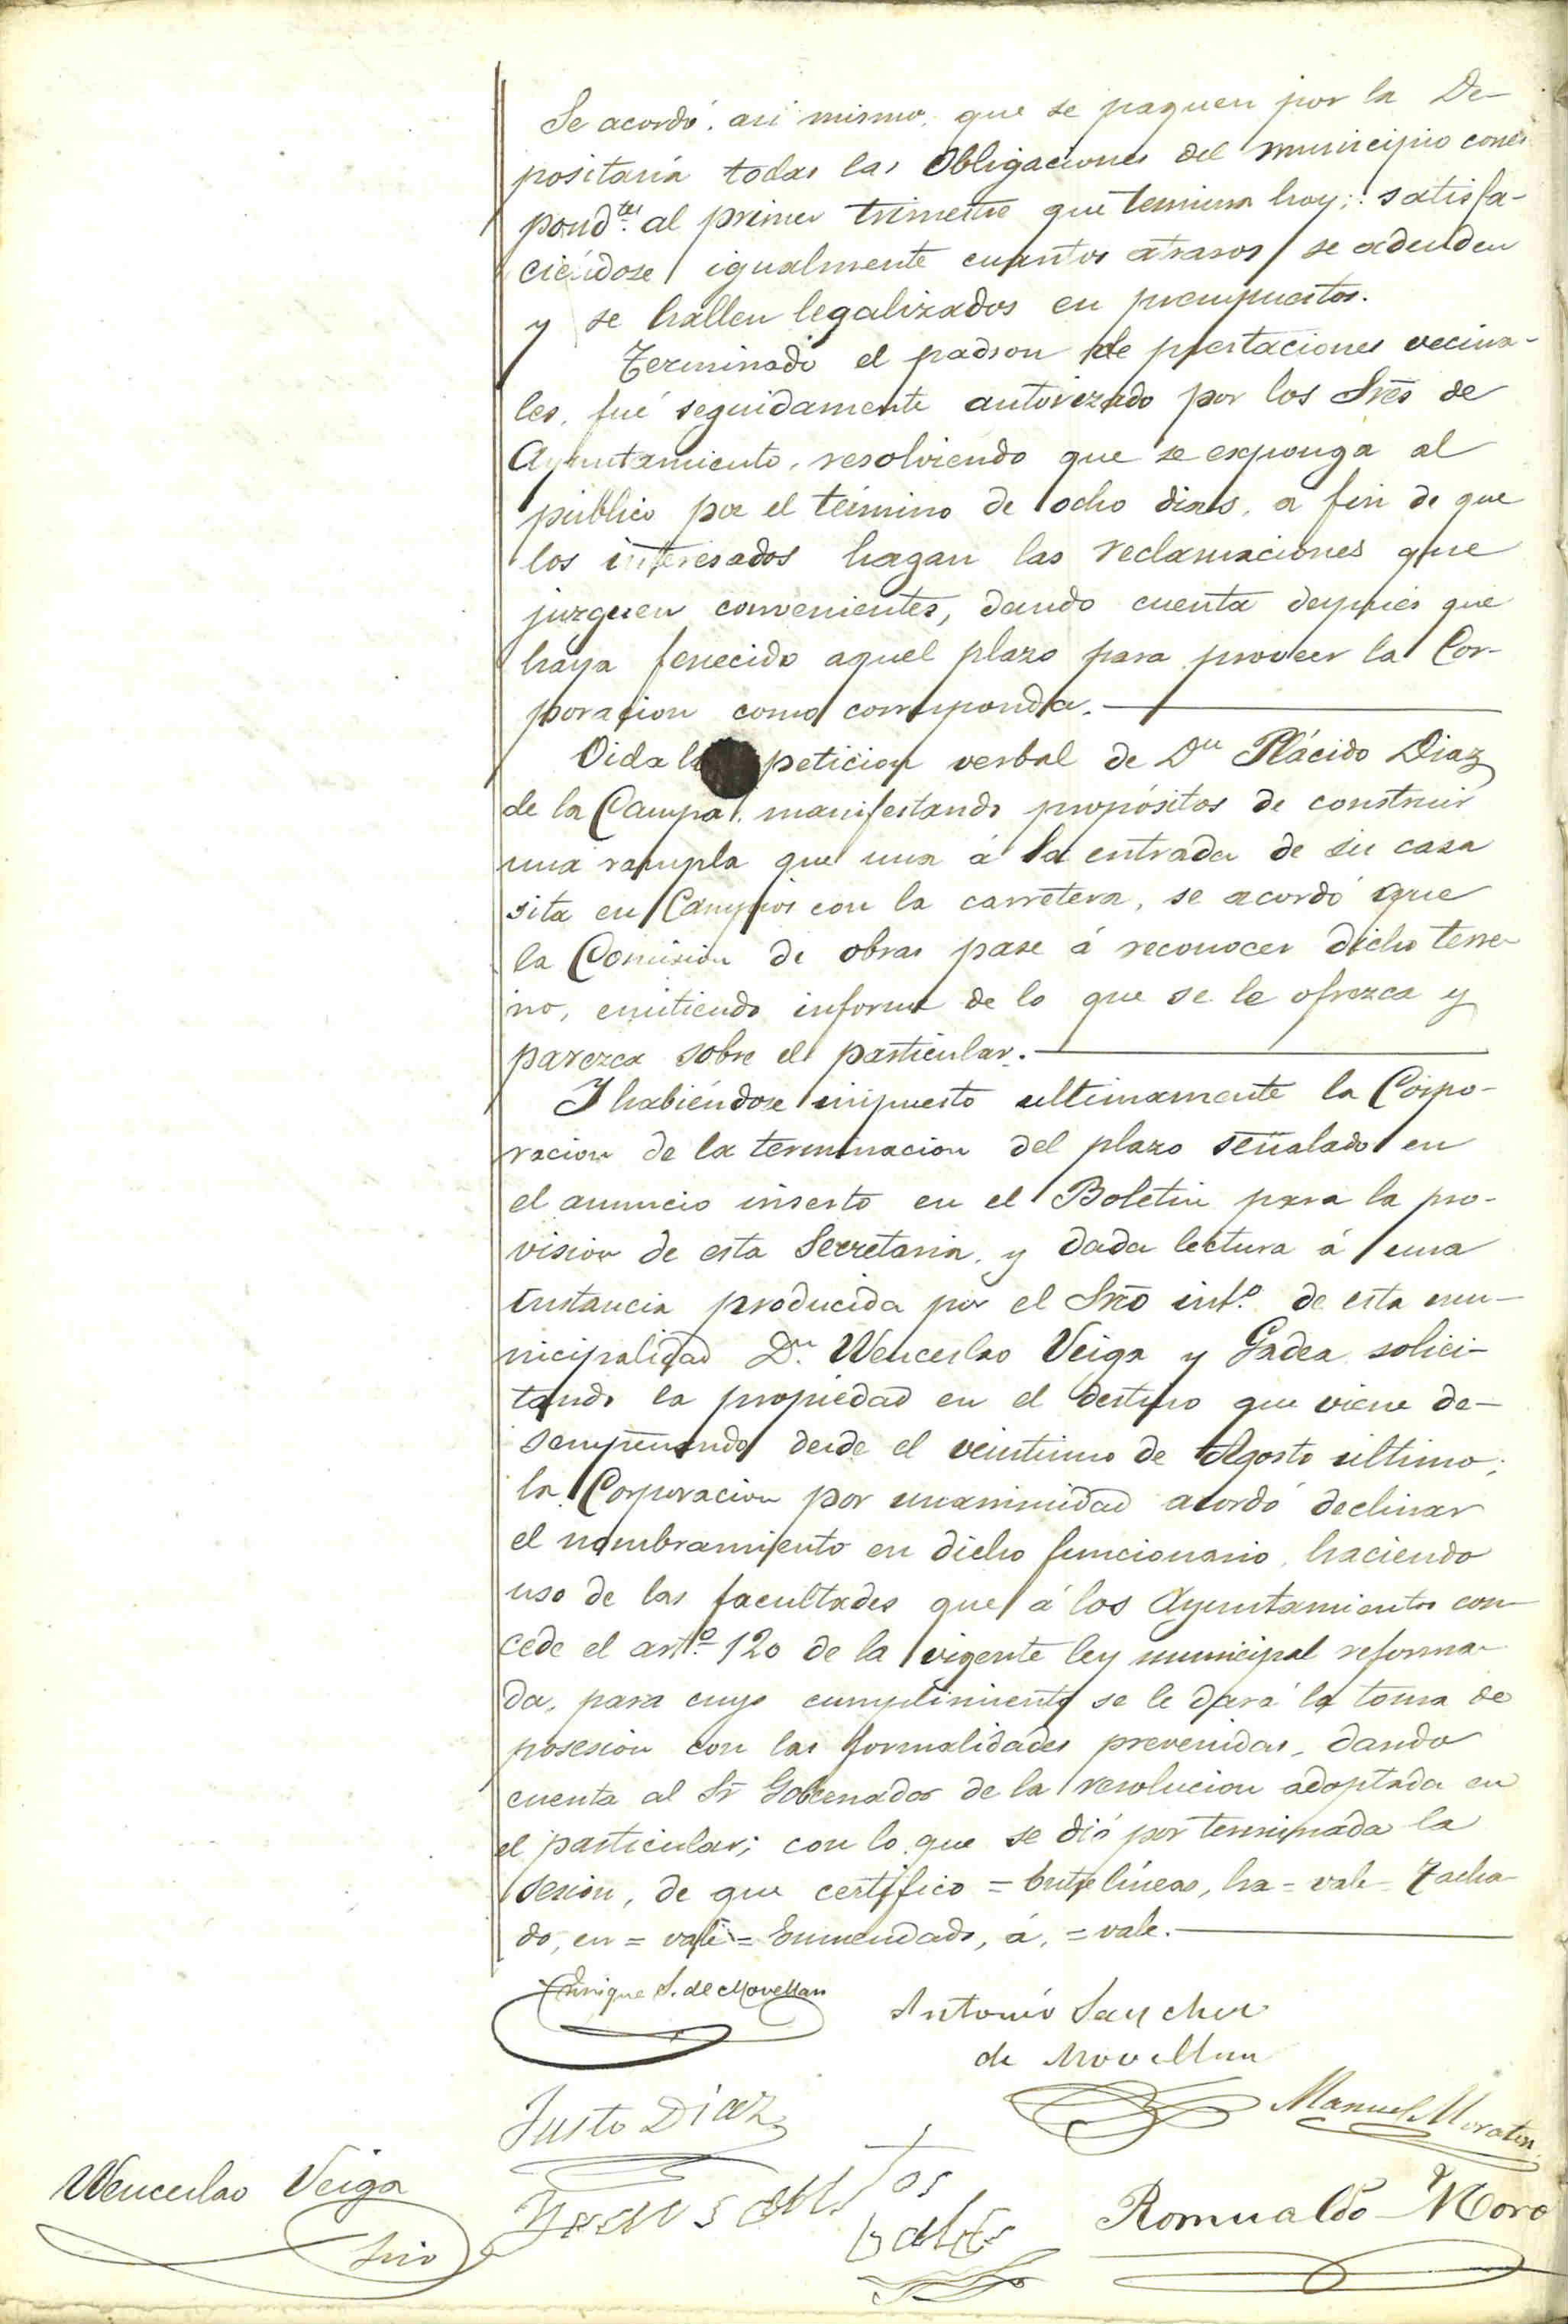 Se acordó, asi mismo, que se paguen por la De-
positaria todas las obligaciones del municipio corres
pond.tes al primer trimestre que termina hoy; satisfa-
ciéndose igualmente cuantos atrasos se adeuden
y se hallen legalizados en presupuestos.
Terminado el padron de prestaciones vecina-
les, fué seguidamente autorizado por los Sres de
Ayuntamiento, resolviendo que se esponga al
público por el término de ocho dias, a fin de que
los interesados hagan las reclamaciones que
juzguen convenientes, dando cuenta despues que
haya fenecido aquel plazo para proveer la Cor-
poracion como corresponda.
Oida la peticion verbal de Dn Plácido Diaz
de la Campa, manifestando propósitos de construir
una rampla que una á la entrada de su casa
sita en Campios con la carretera, se acordó que
la Comision de obras pase á reconocer dicho terre-
no, emitiendo informe de lo que se le ofrezca y
parezca sobre el particular.
Y habiéndose impuesto ultimamente la Corpo-
racion de la terminacion del plazo señalado en
el anuncio inserto en el Boletin para la pro-
vision de esta Secretaria, y dada lectura á una
instancia producida por el Srio int.o de esta mu-
nicipalidad Dn. Wenceslao Veiga y Gadea solici-
tando la propiedad en el destino que viene de-
sempeñando desde el veintiuno de Agosto último;
la Corporacion por unanimidad acordó declinar
el nombramiento en dicho funcionario, haciendo
uso de las facultades que á los Ayuntamientos con-
cede el art.o 120 de la vigente ley municipal reforma-
da, para cuyo cumplimiento se le dará la toma de
posesion con las formalidades prevenidas, dando
cuenta al Sr Gobernador de la resolucion adoptada en
el particular; con lo que se dió por terminada la
sesion, de que certifico = Entre líneas, ha = vale = Tacha-
do, en = vale = Enmendado, á, = vale.
Enrique S. de Movellan
Antonio Sanchez
de Movellan
Justo Diaz
Manuel Moratin
Wenceslao Veiga
Srio
Romualdo Moro